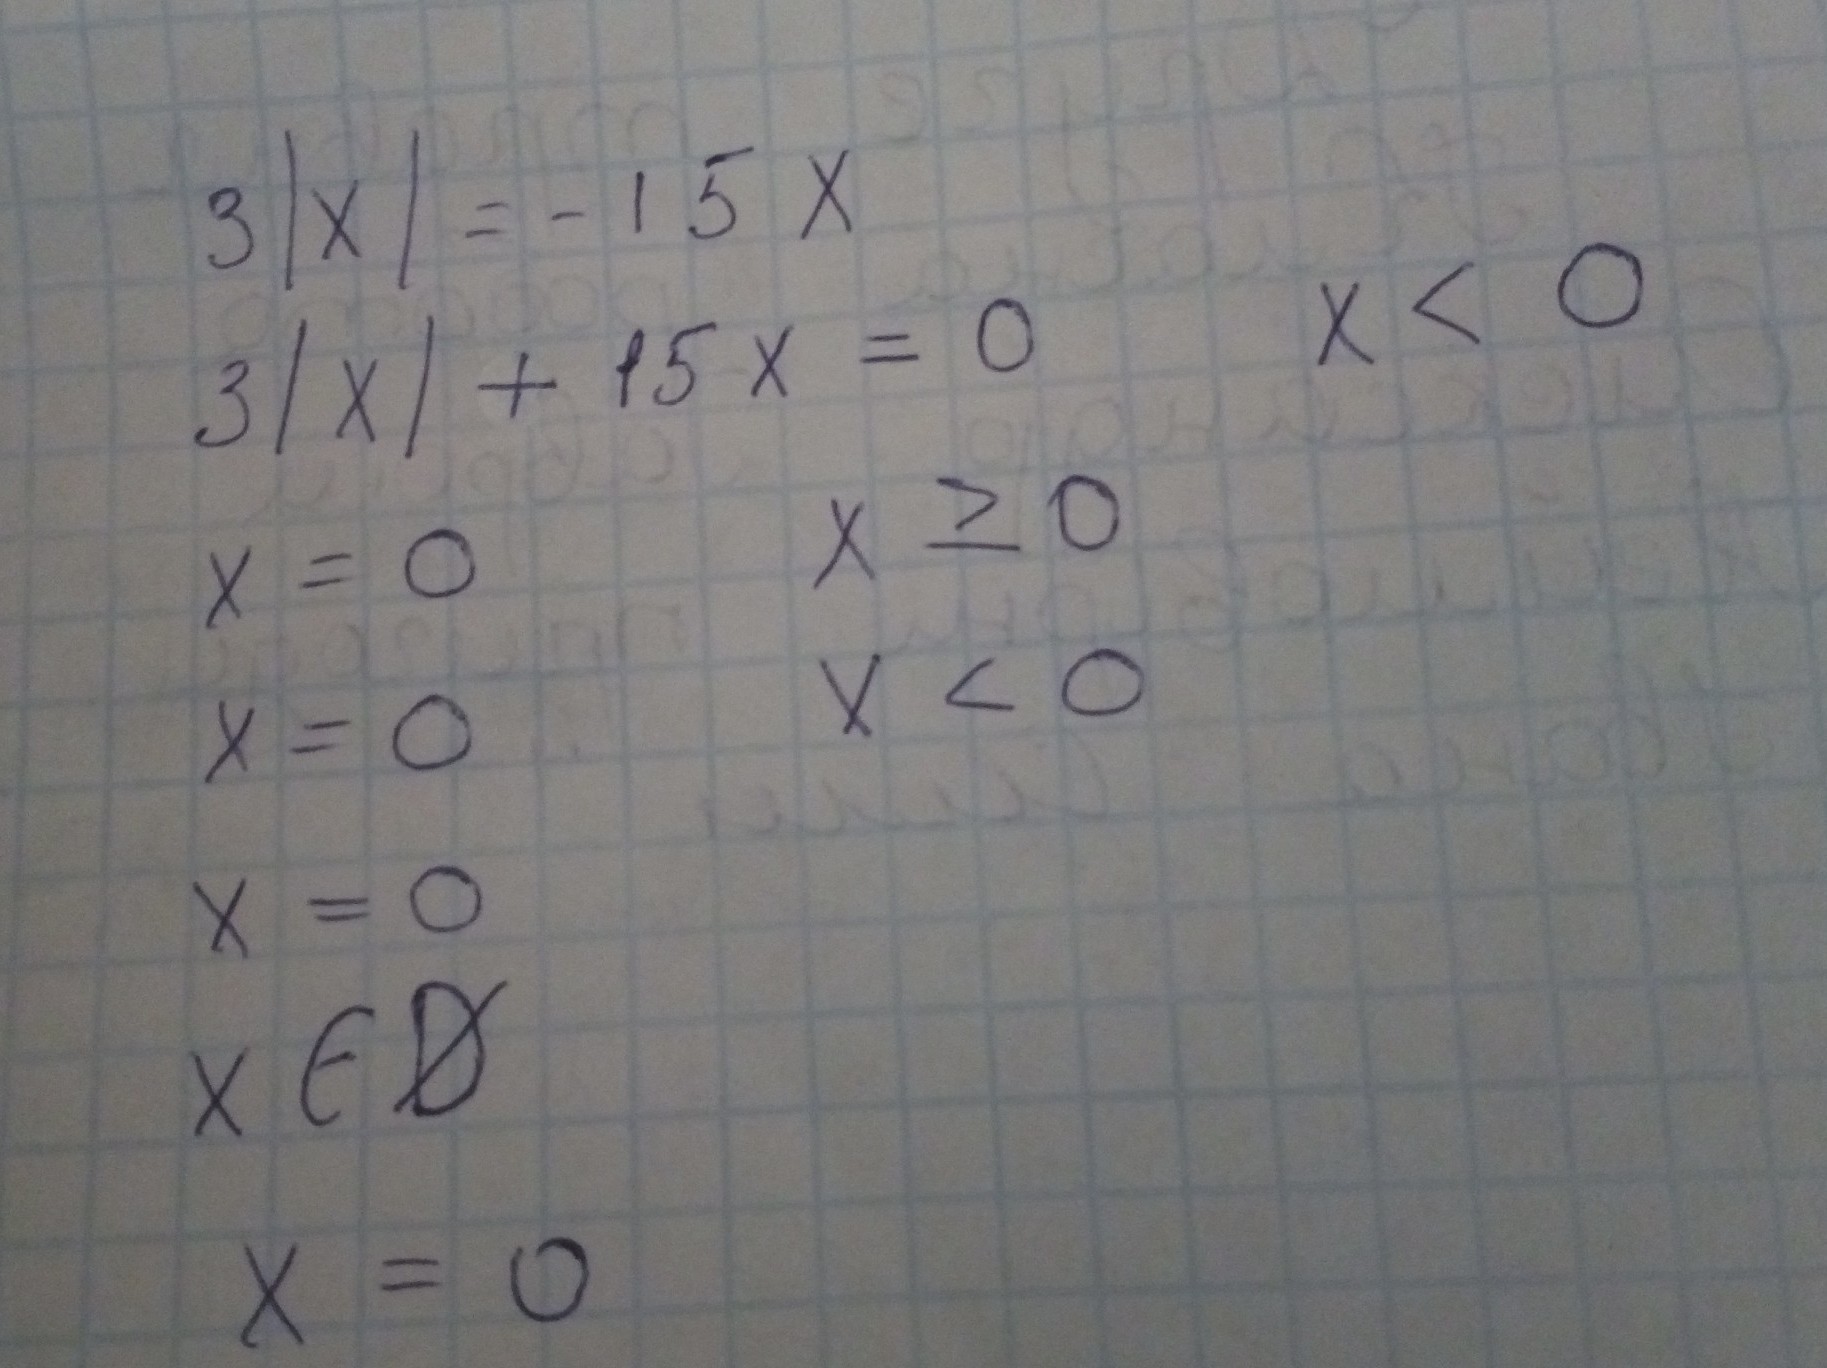 3|x| = -15x
3|x| + 15x = 0 x < 0
x = 0 x ≥ 0
x = 0 x < 0
x = 0
x ∈ ∅
x = 0